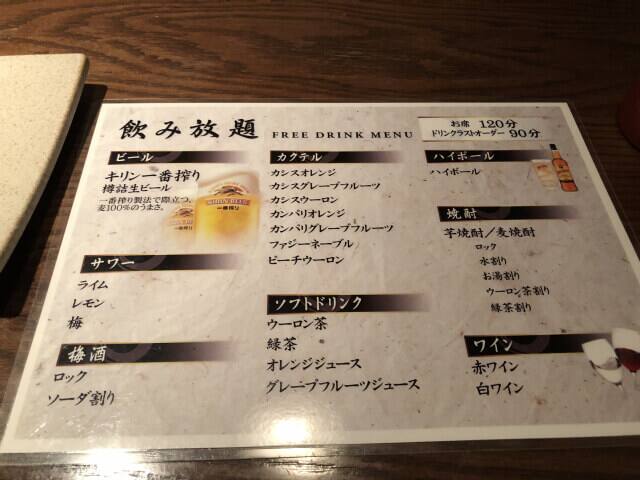 飲み放題 FREE DRINK MENU
お席 120分
ドリンクラストオーダー 90分
ビール
キリン一番搾り
樽詰生ビール
一番搾り製法で際立つ、
麦100%のうまさ。
KIRIN BEER
一番搾り
サワー
ライム
レモン
梅
梅酒
ロック
ソーダ割り
カクテル
カシスオレンジ
カシスグレープフルーツ
カシスウーロン
カンパリオレンジ
カンパリグレープフルーツ
ファジーネーブル
ピーチウーロン
ソフトドリンク
ウーロン茶
緑茶
オレンジジュース
グレープフルーツジュース
ハイボール
ハイボール
焼酎
芋焼酎/麦焼酎
ロック
水割り
お湯割り
ウーロン茶割り
緑茶割り
ワイン
赤ワイン
白ワイン